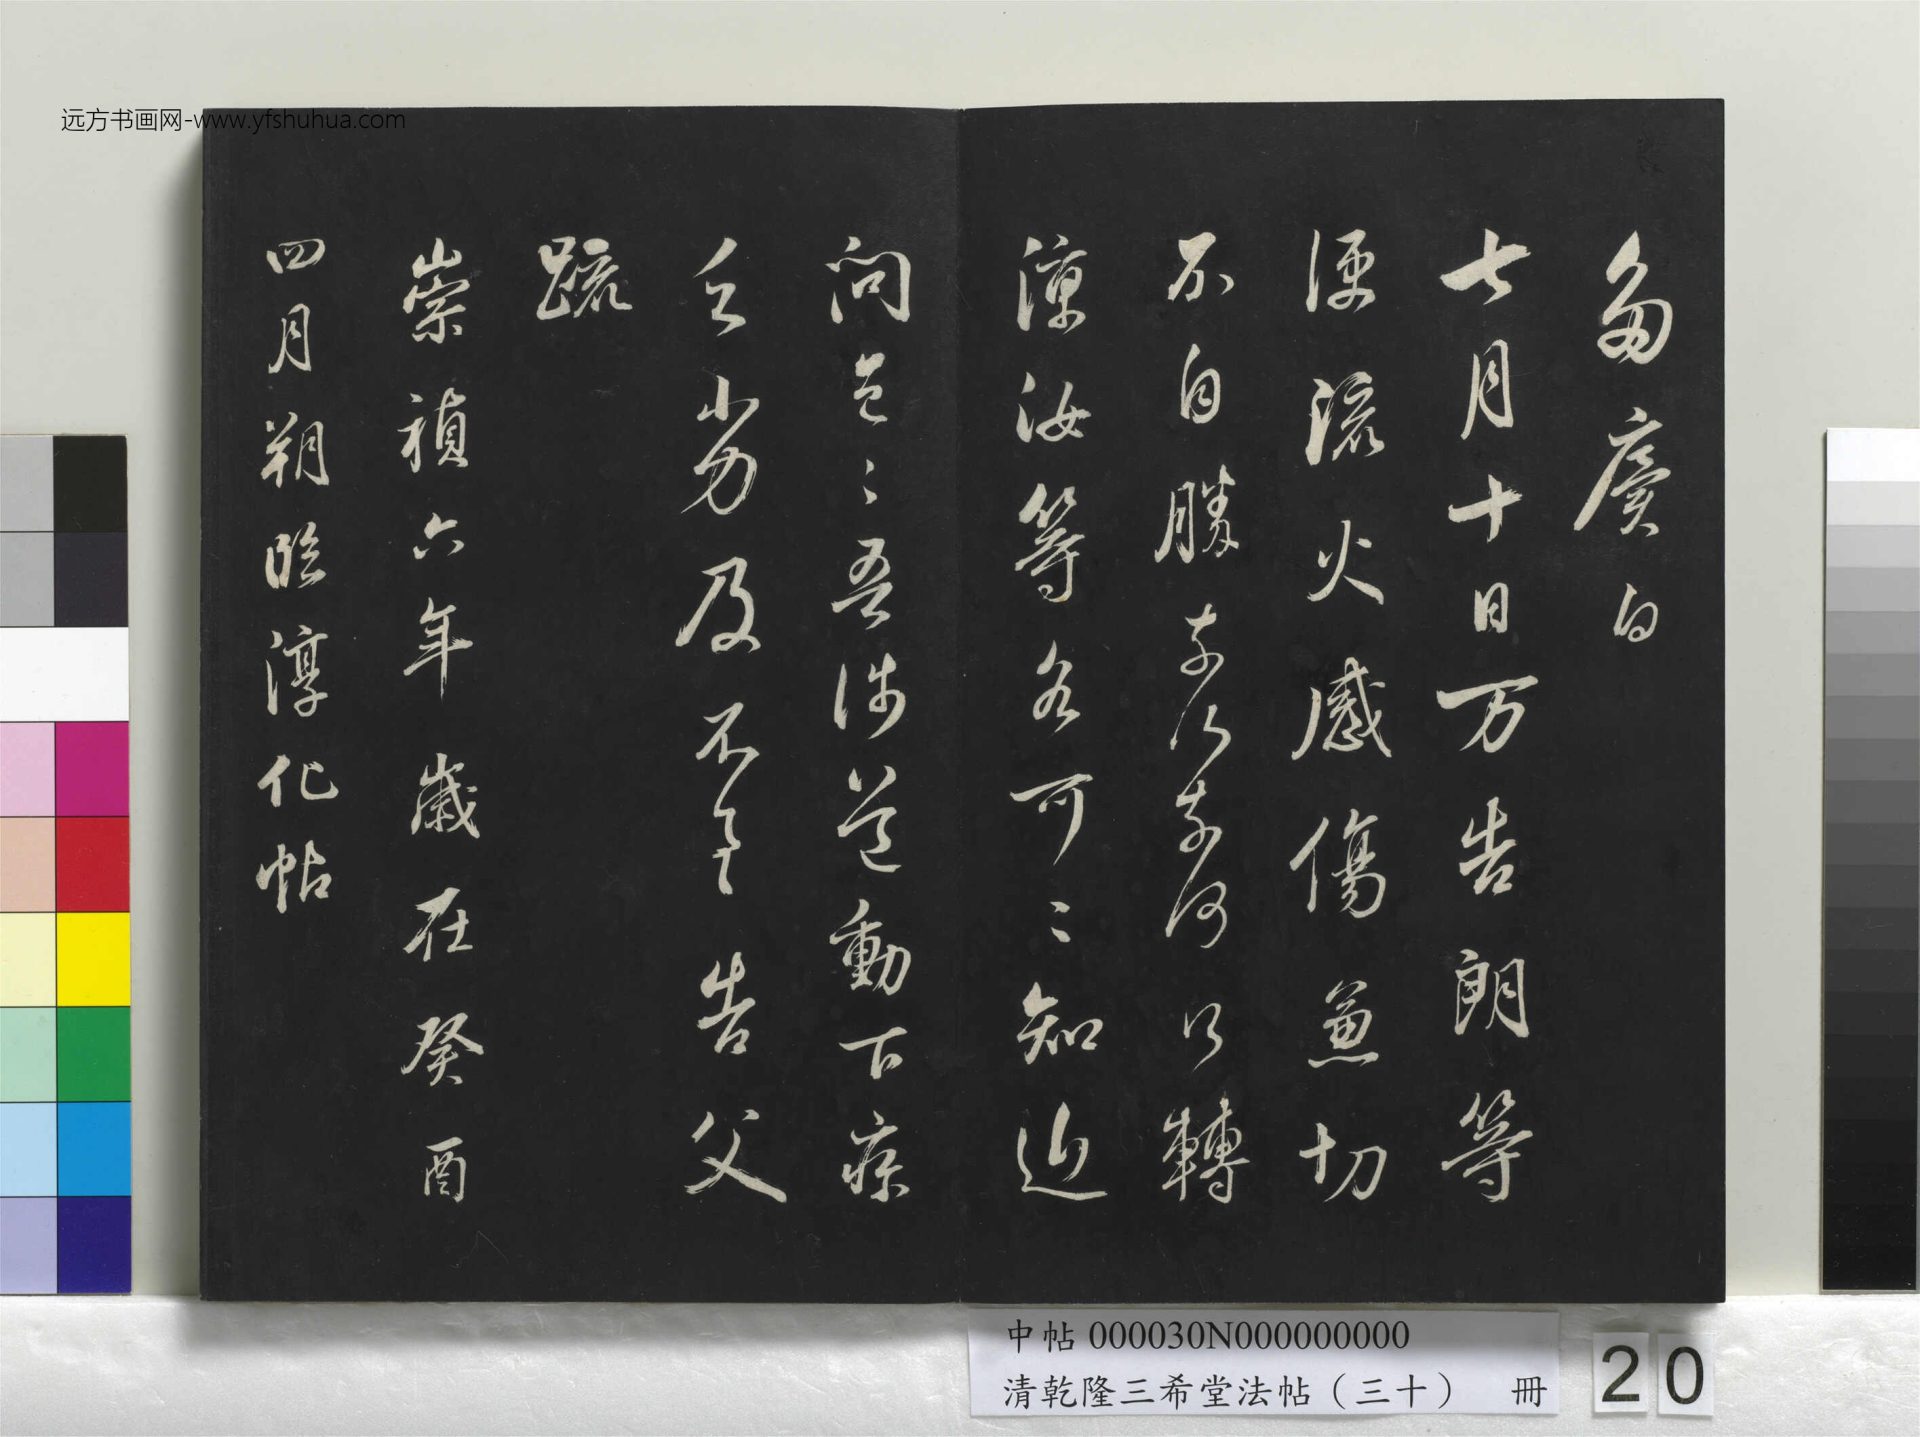 远方书画网-www.yfshuhua.com
白
七月十日万告朗等
便流火感傷兼切
不自勝奈何奈何以轉
涼汝等各可〻知近
問邑〻吾涉道動下疾
乏劣及不具告父
疏
崇禎六年歲在癸酉
四月朔臨淳化帖
中帖 000030N000000000
清乾隆三希堂法帖（三十） 冊
20